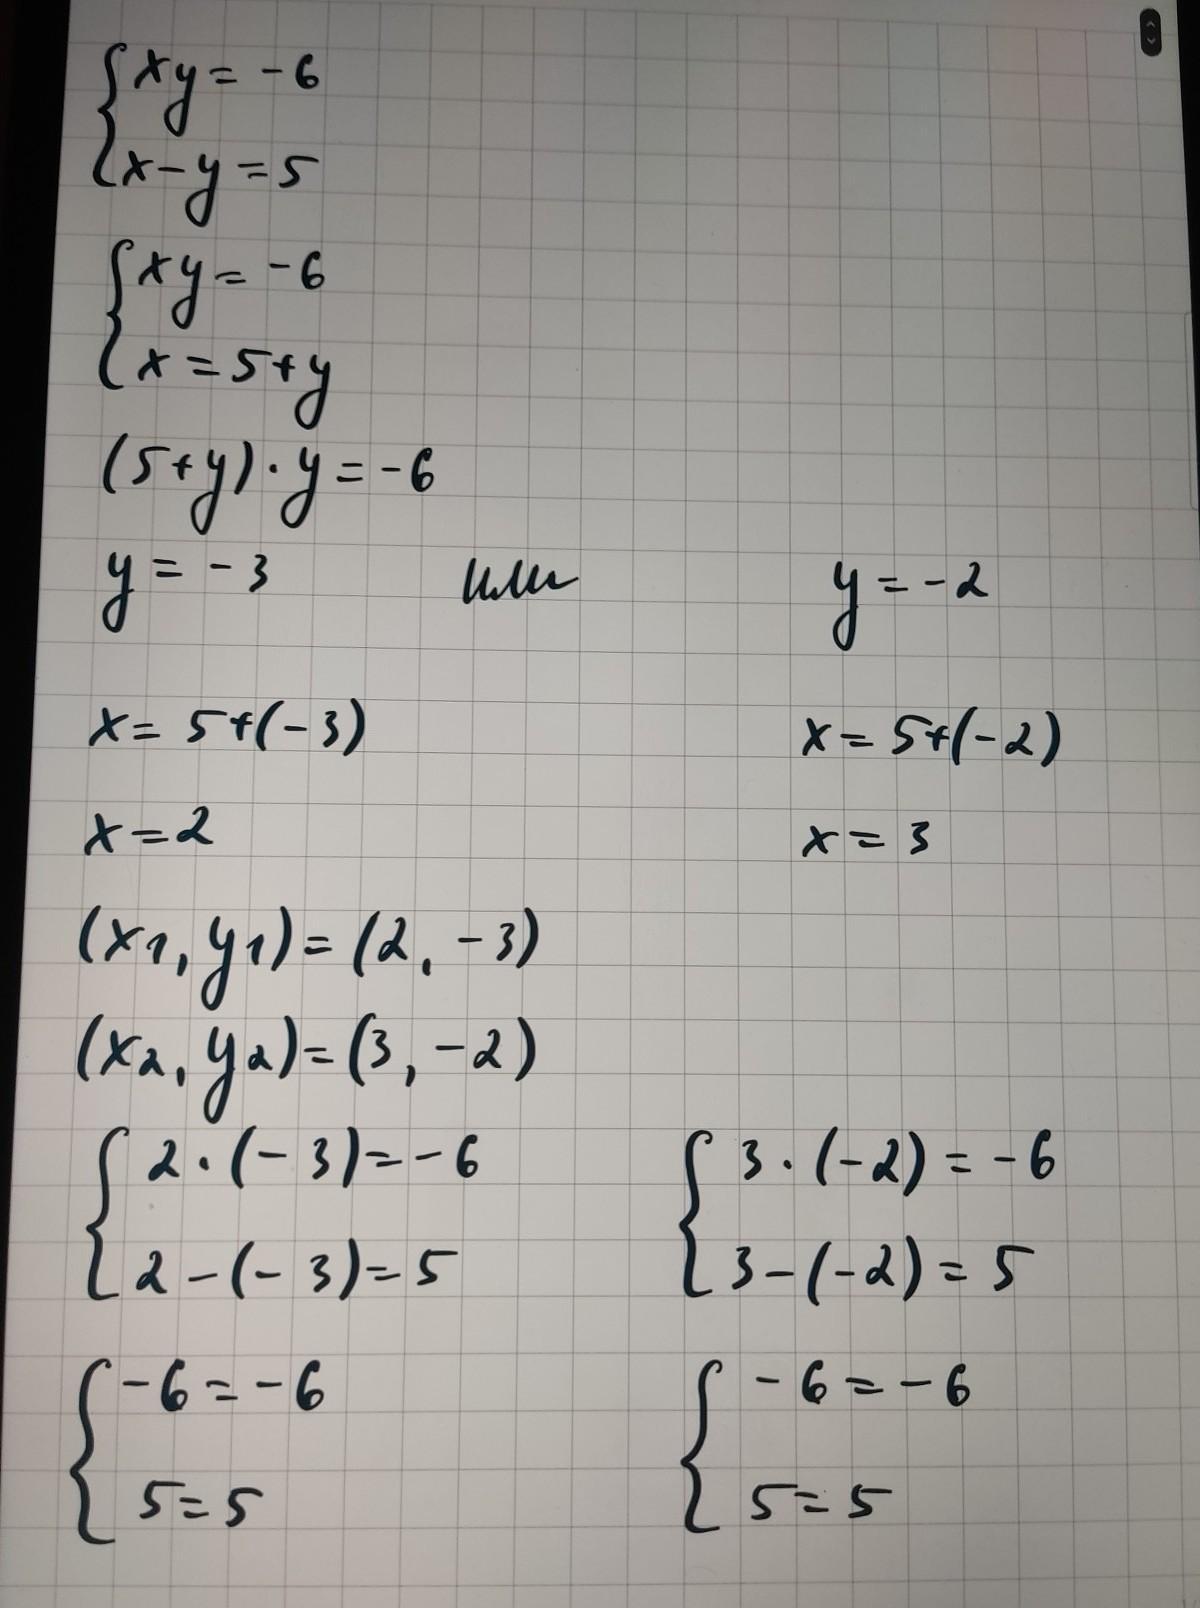 {xy = -6
x - y = 5
{xy = -6
x = 5 + y
(5 + y) · y = -6
y = -3 или y = -2
x = 5 + (-3) x = 5 + (-2)
x = 2 x = 3
(x1, y1) = (2, -3)
(x2, y2) = (3, -2)
{2 · (-3) = -6 {3 · (-2) = -6
2 - (-3) = 5 3 - (-2) = 5
{-6 = -6 {-6 = -6
5 = 5 5 = 5